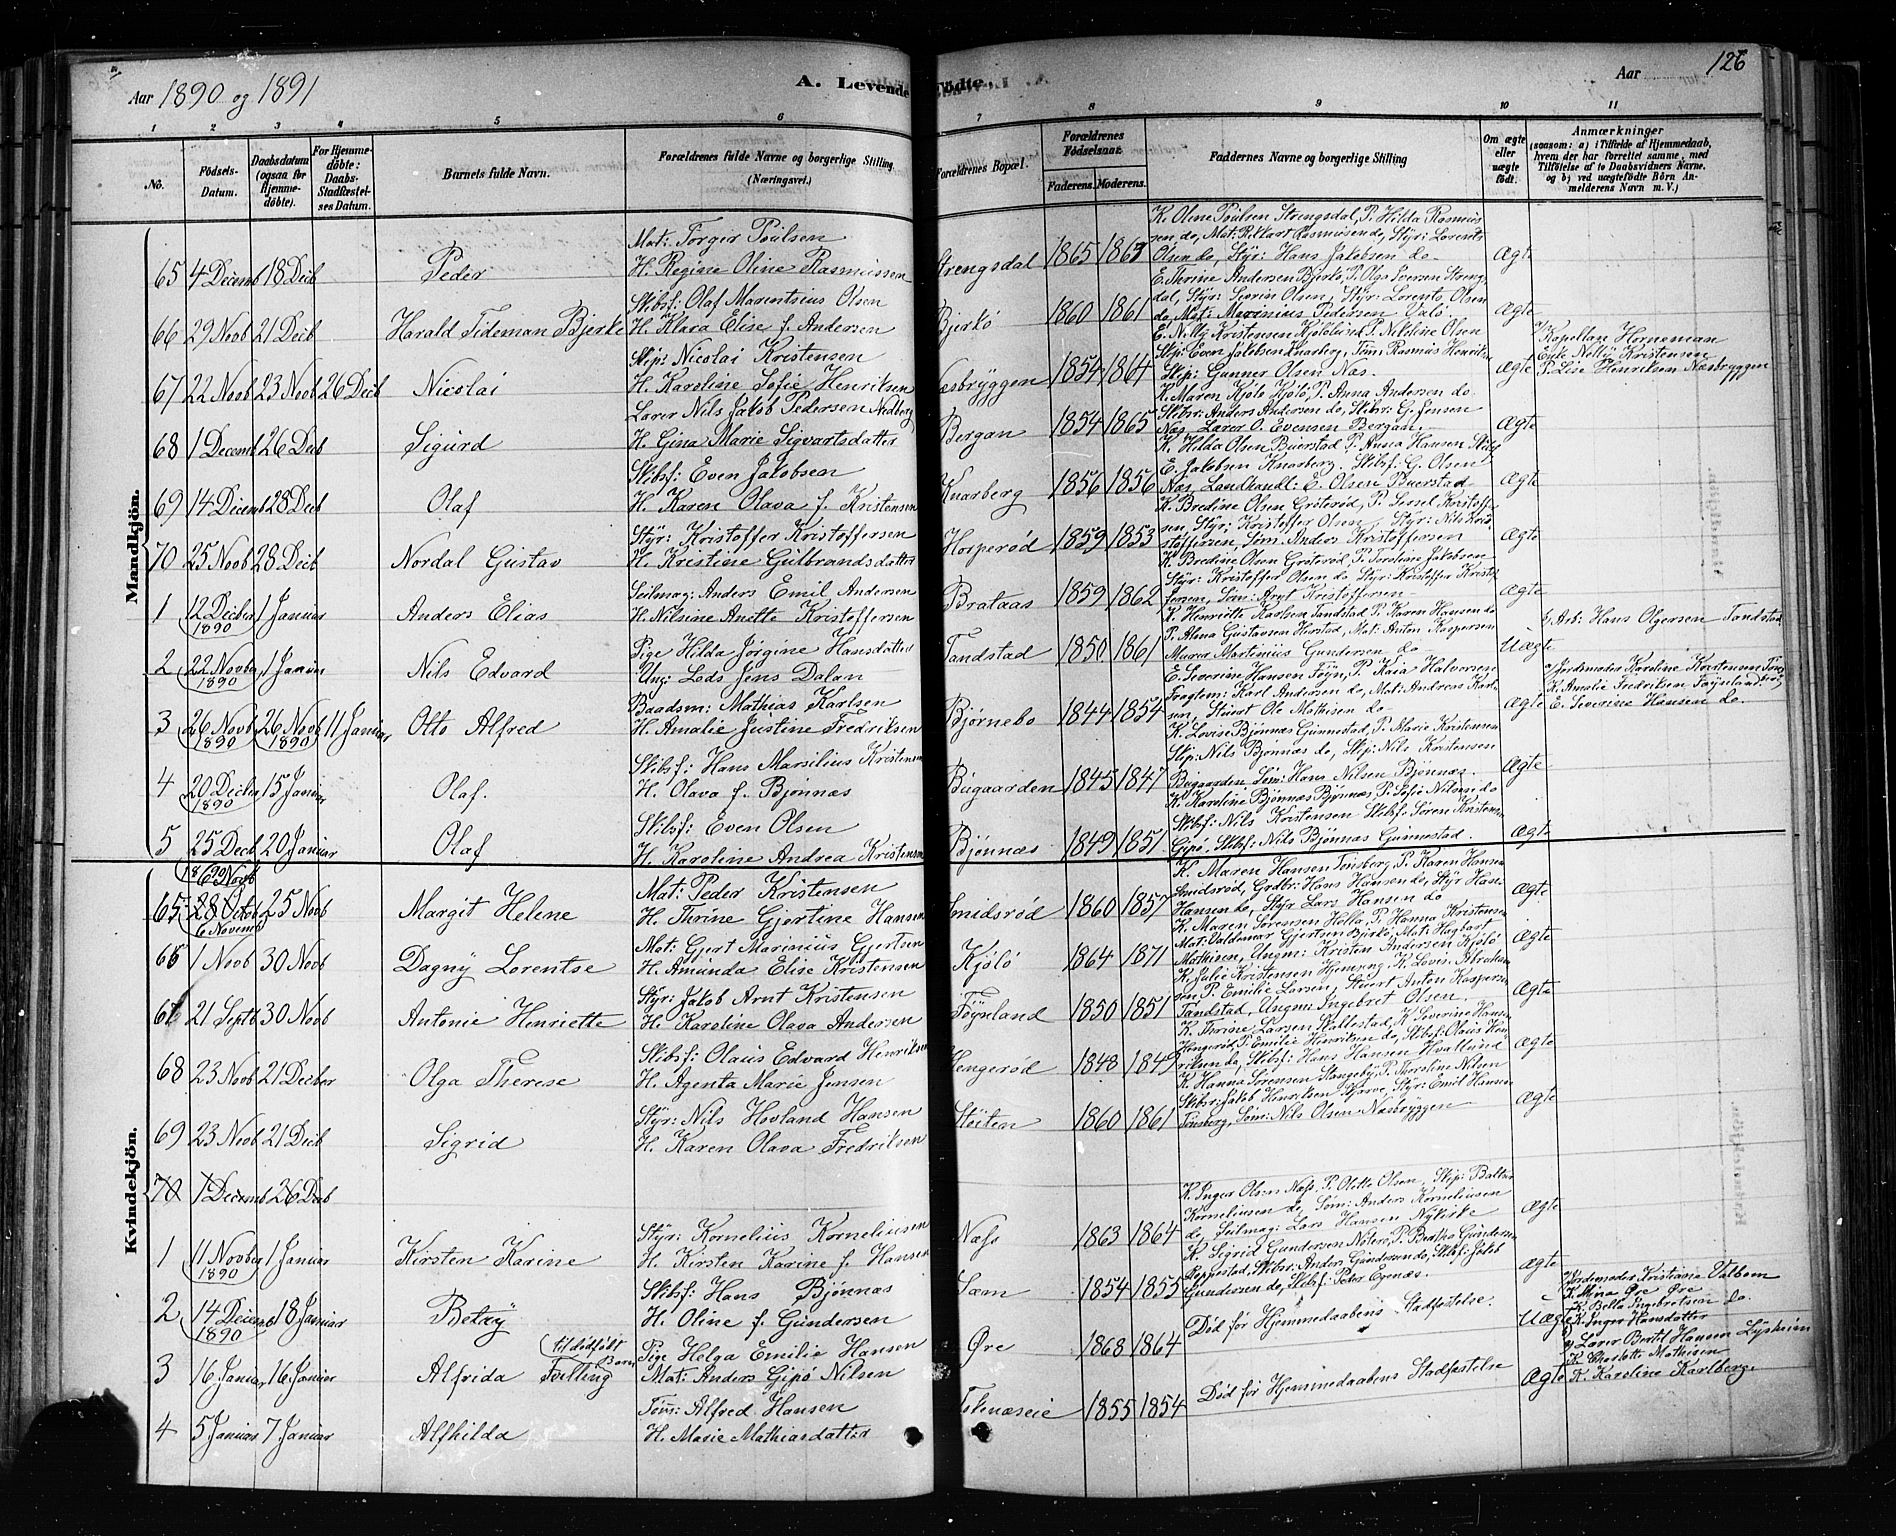 Aar 1890 og 1891
A. Levende Fødte.
Aar 126
1 2 3 4 5 6 7 8 9 10 11
No.
Fødsels-Datum.
Daabsdatum (ogsaa for Hjemmedøbte).
For Hjemmedøbte: Daabs-Stadfæstelses Datum.
Barnets fulde Navn.
Forældrenes fulde Navne og borgerlige Stilling (Næringsvei.)
Forældrenes Bopæl.
Forældrenes Fødselsaar.
Faderens. Moderens.
Faddernes Navne og borgerlige Stilling
Om ægte eller uægte født.
Anmærkninger (saasom: a) i Tilfælde af Hjemmedaab, hvem der har forrettet samme, med Tilføielse af to Daabsvidners Navne. og b) ved uægtefødte Børn Anmelderens Navn m. V.)
Mandkjön.
65 4 Decemb 18 Decb Peder
Mat: Torger Poulsen
H. Regine Oline Rasmussen
Strengsdal 1865 1863
K. Oline Poulsen Strengsdal, P. Hilda Rasmussen do, Mat: Rikart Rasmusen do, Styr: Lorents Olsen do, Styr: Hans Jakobsen do
Ægte
66 29 Novb 21 Decb Harald Tideman Bjerke
Skibsf: Olaf Marentsius Olsen
H. Klara Elise f. Andersen
Bjerkö 1860 1861
E. Thrine Andersen Bjerkö, P. Olga Iversen Strengsdal, Styr: Severin Olsen, Styr: Lorents Olsen do, Mat: Marinius Pedersen Valö.
Ægte
67 22 Novb 23 Novb 26 Decb Nicolai
Skip: Nicolai Kristensen
H. Karoline Sofie Henriksen
Næsbryggen 1854 1864
E. Nelly Kristensen, P. Nikoline Olsen
Skip: Even Jakobsen Knarberg, Töm: Rasmus Henriksen
Skip: Gunner Olsen Næs.
Ægte
Kapellan Horneman
Enke Nelly Kristensen
P. Lise Henriksen Næsbryggen
68 1 Decemb 26 Decb Sigurd
Lærer Nils Jakob Pedersen Nedberg
H. Gina Marie Sigvartsdatter
Bergan 1854 1865
K. Maren Kjölö Kjölö, P. Anna Andersen do
Skibsr: Anders Andersen do, Skibsr: G. Jensen Næs, Lærer O. Evensen Bergan.
Ægte
69 14 Decemb 28 Decb Olaf
Skibsf: Even Jakobsen
H. Karen Olava f. Kristensen
Knarberg 1856 1856
K. Hilda Olsen Buerstad P. Anna Hansen
E. Jakobsen Knarberg. Skibsf: G. Olsen
Næs, Landhandl: E. Olsen Buerstad
Ægte
70 25 Novb 28 Decb Nordal Gustav
Styr: Kristoffer Kristoffersen
H. Kristine Gulbrandsdatter
Horperød 1859 1853
K. Bredine Olsen Gröterød, P. Kristoffersen, Styr: Kristoffer Olsen, Styr: Nils Kristoffersen, Söm: Anders Kristoffersen
Ægte
1 12 Decber 1890 1 Januar Anders Elias
Seilmag: Anders Emil Andersen
H. Nilsine Anette Kristoffersen
Brataas 1859 1862
K. Bredine Olsen Gröterød, P. Torstine Jakobsen
Styr: Kristoffer Olsen do Styr: Kristoffer Kristoffersen, Söm: Arnt Kristoffersen
Ægte
2 22 Novber 1890 1 Januar Nils Edvard
Pige Hilda Jørgine Hansdatter
Ung: Lods Jens Dalan
Tandstad 1850 1861
K. Henriette Karlsen Tandstad P. Karen Hansen do
P. Alena Gustavsen Herstad, Mat: Anton Kaspersen
Murer Martinius Gundersen do
Uægte
Arb: Hans Olgersen Tandstad
3 26 Novb 1890 26 Novb 1890 11 Januar Otto Alfred
Baadsm: Mathias Karlsen
H. Amalie Justine Fredriksen
Bjørnebo 1844 1854
E. Severine Hansen Føyn, P. Kaia Halvorsen
Karl Andersen do, Mat: Andreas Karlsen, Stuert Ole Mathisen do
Ægte
Jordemoder Karoline Kristensen
K. Amalie Fredriksen Føynland
E. Severine Hansen do.
4 20 Decber 1890 15 Januar Olaf
Skibsf: Hans Marsilius Kristensen
H. Olava f. Bjønnæs
Bugaarden 1845 1847
K. Lovise Bjønnæs Gunnestad, P. Marie Kristensen
Skip: Nils Bjønnæs do, Skip: Nils Kristensen
Bugaarden Söm: Hans Nilsen Bjönnæs.
Ægte
5 25 Decb 1890 20 Januar Olaf
Skibsf: Even Olsen
H. Karoline Andrea Kristensen
Bjønnæs 1849 1851
K. Karoline Bjønnæs Bjønnæs P. Sofie Nilsen do
Skibsf: Nils Kristensen Skibsf: Sören Kristensen
Gipö, Skibsf: Nils Bjønnæs Gunnestad.
Ægte
Kvindekjön.
65 28 Octob 6 November 25 Novb Margit Helene
Mat: Peder Kristensen
H. Thrine Gjertine Hansen
Smidsrød 1860 1857
K. Maren Hansen Tönsberg, P. Karen Hansen
Smidsrød, Grdbr: Hans Hansen do, Styr Hans Hansen do, Styr Lars Hansen do
Ægte
66 1 Novb 30 Novb Dagny Lorentse
Mat: Gjert Marinius Gjertsen
H. Amunda Elise Kristensen
Kjölö 1864 1871
K. Maren Sörensen Holla, P. Hanna Kristensen
Mat: Valdemar Gjertsen Bjerkö, Mat: Hagbart Mathisen, Ungm: Kristen Andersen Kjölö
Ægte
67 21 Septb 30 Novb Antonie Henriette
Styr: Jakob Arnt Kristensen
H. Karoline Olava Andersen
Føynland 1850 1851
K. Julie Kristensen Hjemseng, K. Lovise Abrahamsen P. Emilie Larsen, Stuert Anton Kaspersen
Tandstad, Ungm: Ingebret Olsen.
Ægte
68 23 Novb 21 Decber Olga Therese
Skibsf: Olaus Edvard Henriksen
H. Agenta Marie Jensen
Hengerød 1848 1849
K. Thrine Larsen Skallestad, K. Severine Hansen
Hengerød, P. Emilie Henriksen do, Skibsf: Olaus Henriksen do, Skibsf: Hans Hansen Hvatlund
Ægte
69 23 Novb 21 Decb Sigrid
Styr: Nils Hovland Hansen
H. Karen Olava Fredriksen
Støiten 1860 1861
K. Hanna Sörensen Stangeby, P. Thoroline Nilsen
Skibsr: Jakob Henriksen, Styr: Emil Hansen
Tönsberg, Söm: Nils Olsen Næsbryggen
Ægte
70 1 Decemb 26 Decb
1 11 Novber 1890 1 Januar Kirsten Karine
Styr: Kornelius Korneliusen
H. Kirsten Karine f. Hansen
Næss 1863 1864
K. Inger Olsen Næss, P. Olette Olsen, Skip: Baltser Korneliusen do, Söm: Anders Korneliusen do, Seilmag: Lars Hansen Nykirke
Ægte
2 14 Decemb 1890 18 Januar Betzy
Skibsf: Hans Bjønnæs
H. Oline f. Gundersen
Sæm 1854 1855
K. Sigrid Gundersen Nöterö, P. Bertha Gundersen
Roppestad, Skibsr: Anders Gundersen do, Skibsf: Jakob Gundersen do, Skibsf: Peder Egenæs.
Ægte
3 16 Januar 16 Januar Alfrida Tvilling (til dödfödt Barn)
Pige Helga Emilie Hansen
Mat: Anders Gipö Nilsen
Øre 1868 1864
Död för Hjemmedaabens Stadfæstelse.
Uægte
Jordemoder Kristiane Valbom
K. Mina Øre Øre
K. Bella Ingebretsen do.
K. Inger Hansdatter
4 5 Januar 7 Januar Alfhilda
Töms: Alfred Hansen
H. Marie Mathiasdatter
1855 1854
Död för Hjemmedaabens Stadfæstelse
Ægte
Lærer Bertel Hansen Lysheim
K. Charlotte Mathisen
K. Karoline Karlberg.